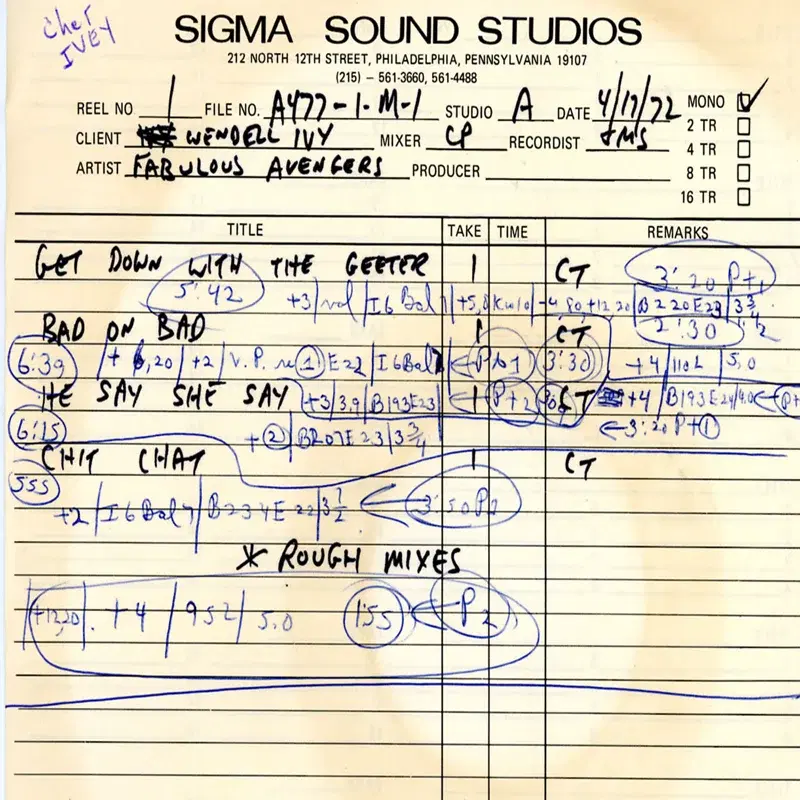 Chet
IVEY
SIGMA SOUND STUDIOS
212 NORTH 12TH STREET, PHILADELPHIA, PENNSYLVANIA 19107
(215) – 561-3660, 561-4488
REEL NO 1 FILE NO. A477-1-M-1 STUDIO A DATE 4/17/72 MONO ✓
2 TR
CLIENT WENDELL IVY MIXER CP RECORDIST JMS
4 TR
ARTIST FABULOUS AVENGERS PRODUCER
8 TR
16 TR
TITLE TAKE TIME REMARKS
GET DOWN WITH THE GEETER 1 CT 3:20 Pt1
5:42 +3 | vol | I6 Bal 7 | +5,8 -4,80,+12,20 | B220E23 | 3 3/4
BAD ON BAD 1 CT 2:30
6:39 +6,20 | +2 | V.P. 1 E22 | I6 Bal 7 ← Pt1 3:30 +4 | 110L | 5,0
HE SAY SHE SAY +3 | 3,9 | B193E23 1 Pt2 CT +4 | B193E24 | 4,0 ←
6:15 +2 | B207E23 | 3 3/4 ← 3:20 Pt1
CHIT CHAT 1 CT
555
+2 | I6 Bal 7 | B234E22 | 3 1/2 ← 3:50 P1
* ROUGH MIXES
+12,20 . +4 | 952 | 5,0 1:55 ← P2